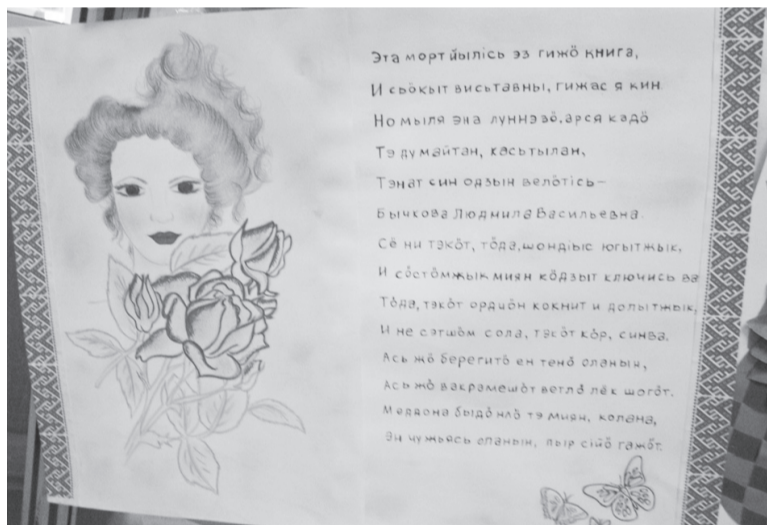 Эта морт йылісь эз гижӧ книга,
И сьӧкыт висьтавны, гижас я кин
Но мыля эна луннэзӧ, арся кадӧ
Тэ думайтан, касьтылан,
Тэнат син одзын велӧтісь–
Бычкова Людмила Васильевна.
Сё ни тэкӧт, тӧда, шондіыс югытжык,
И сӧстӧмжык миян кӧдзыт ключись ва
Тӧда, тэкӧт ордчӧн кокнит и долытжык,
И не сэтшӧм сола, тэкӧт кӧр, синва.
Ась жӧ берегитӧ ен тенӧ оланын,
Ась жӧ вакрамешӧт ветлӧ лёк шогӧт.
Медвона быдӧнлӧ тэ миян, колана,
Эн чужьясь оланын, пыр сійӧ гажӧт.